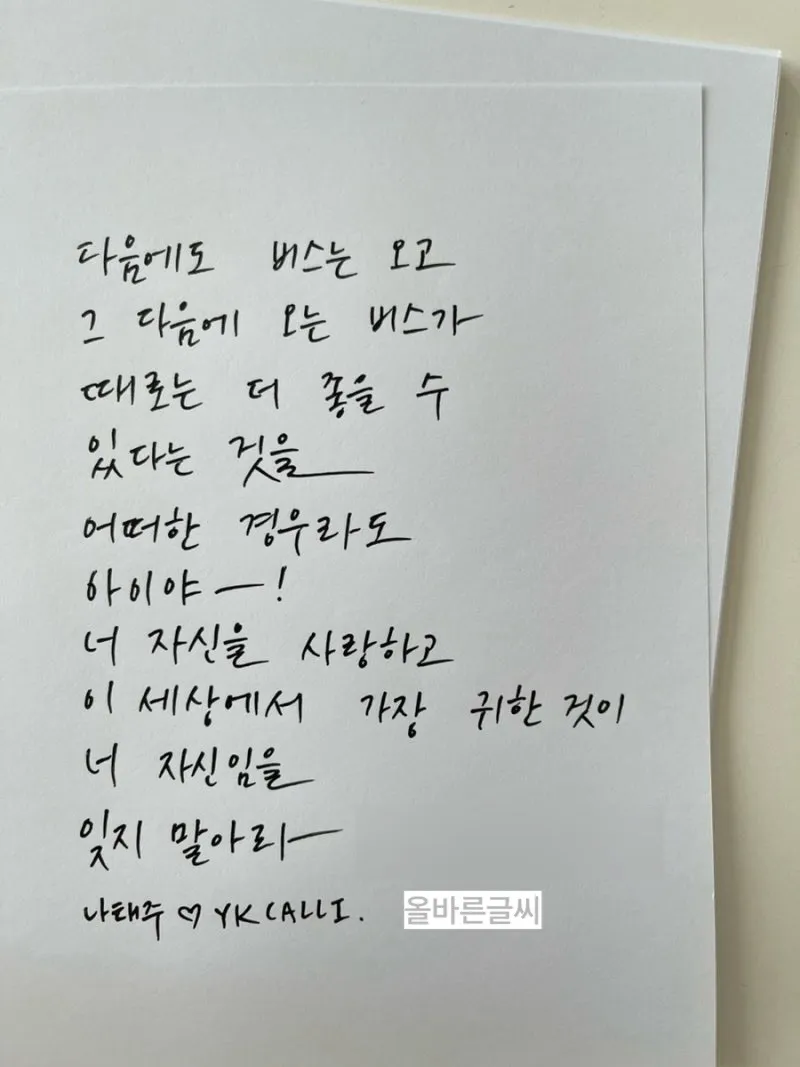 다음에도 버스는 오고
그 다음에 오는 버스가
때로는 더 좋을 수
있다는 것을
어떠한 경우라도
아이야—!
너 자신을 사랑하고
이 세상에서 가장 귀한 것이
너 자신임을
잊지 말아라
나태주 ♡ YKCALLI. 올바른글씨